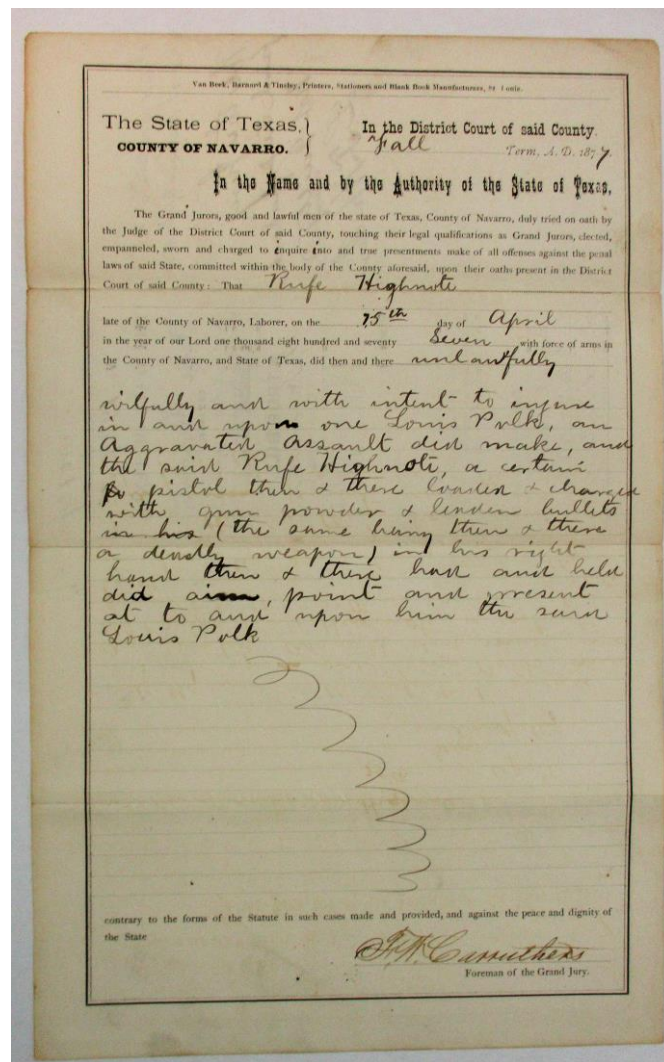 Van Beek, Barnard & Tinsley, Printers, Stationers and Blank Book Manufacturers, St. Louis.
The State of Texas, } In the District Court of said County.
COUNTY OF NAVARRO. Fall Term, A. D. 1877.
In the Name and by the Authority of the State of Texas,
The Grand Jurors, good and lawful men of the state of Texas, County of Navarro, duly tried on oath by
the Judge of the District Court of said County, touching their legal qualifications as Grand Jurors, elected,
empanneled, sworn and charged to inquire into and true presentments make of all offenses against the penal
laws of said State, committed within the body of the County aforesaid, upon their oaths present in the District
Court of said County: That Rufe Highnote
late of the County of Navarro, Laborer, on the 15th day of April
in the year of our Lord one thousand eight hundred and seventy Seven with force of arms in
the County of Navarro, and State of Texas, did then and there unlawfully
wilfully and with intent to injure
in and upon one Louis Polk, an
Aggravated Assault did make, and
the said Rufe Highnote, a certain
pistol then & there loaded & charged
with gun powder & leaden bullets
in his (the same being then & there
a deadly weapon) in his right
hand then & there had and held
did aim, point and present
at to and upon him the said
Louis Polk
contrary to the forms of the Statute in such cases made and provided, and against the peace and dignity of
the State
F. W. Carruthers
Foreman of the Grand Jury.